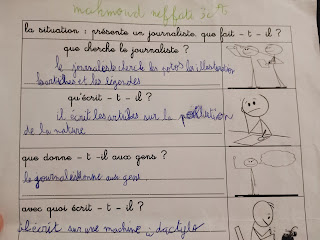 mahmoud neffati 3c n°5
la situation : présente un journaliste. que fait - t - il ?
que cherche le journaliste ?
le journaliste cherche les pros les illustration
les articles et les légendes
qu'écrit - t - il ?
il écrit les articles sur la pollution
de la nature
que donne - t - il aux gens ?
le journal donne aux gens
avec quoi écrit - t - il ?
il écrit sur une machine à dactylo